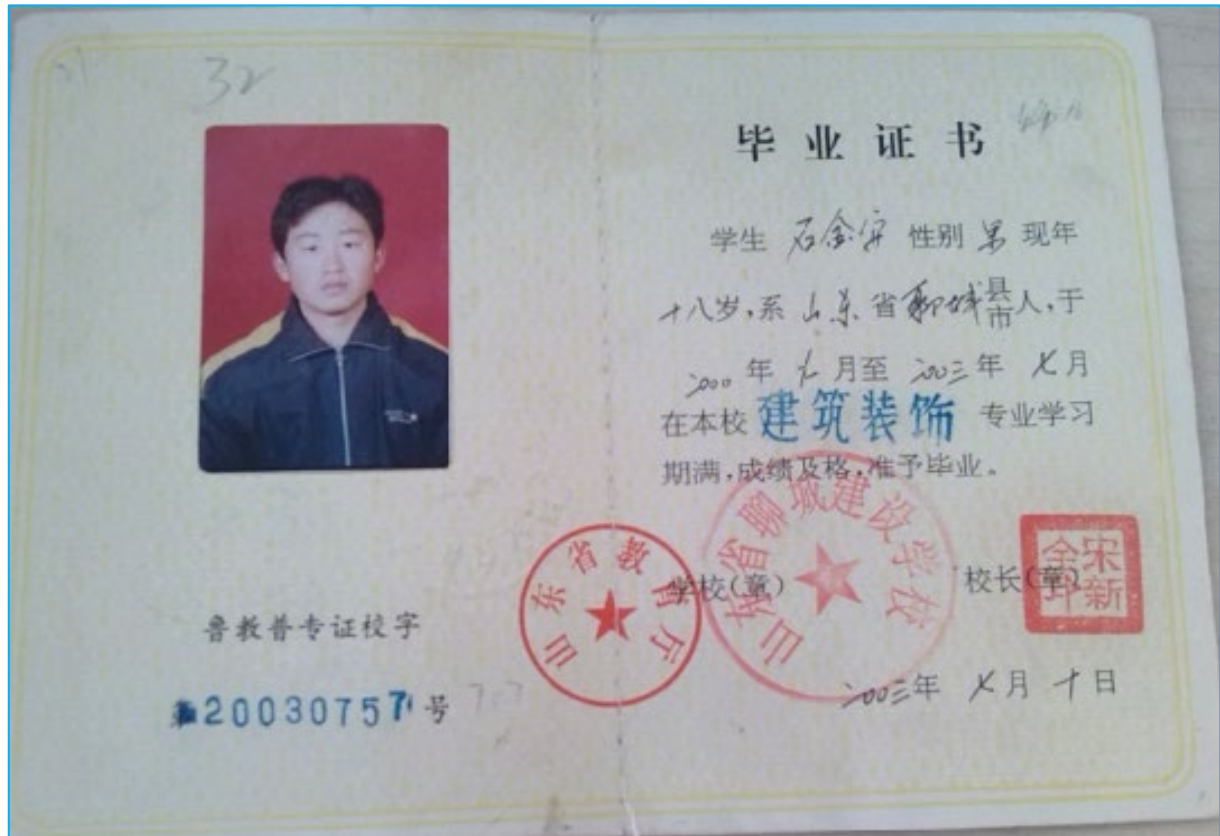 32
毕业证书
学生 石金 性别 男 现年
十八岁,系 山东 省 聊城 县市 人,于
2000 年 九 月至 2003 年 七 月
在本校 建筑装饰 专业学习
期满,成绩及格,准予毕业。
学校(章) 校长(章)
山东省教育厅
山东省聊城建设学校
宋新全印
鲁教普专证校字
第200307571号
2003年 七月 十日